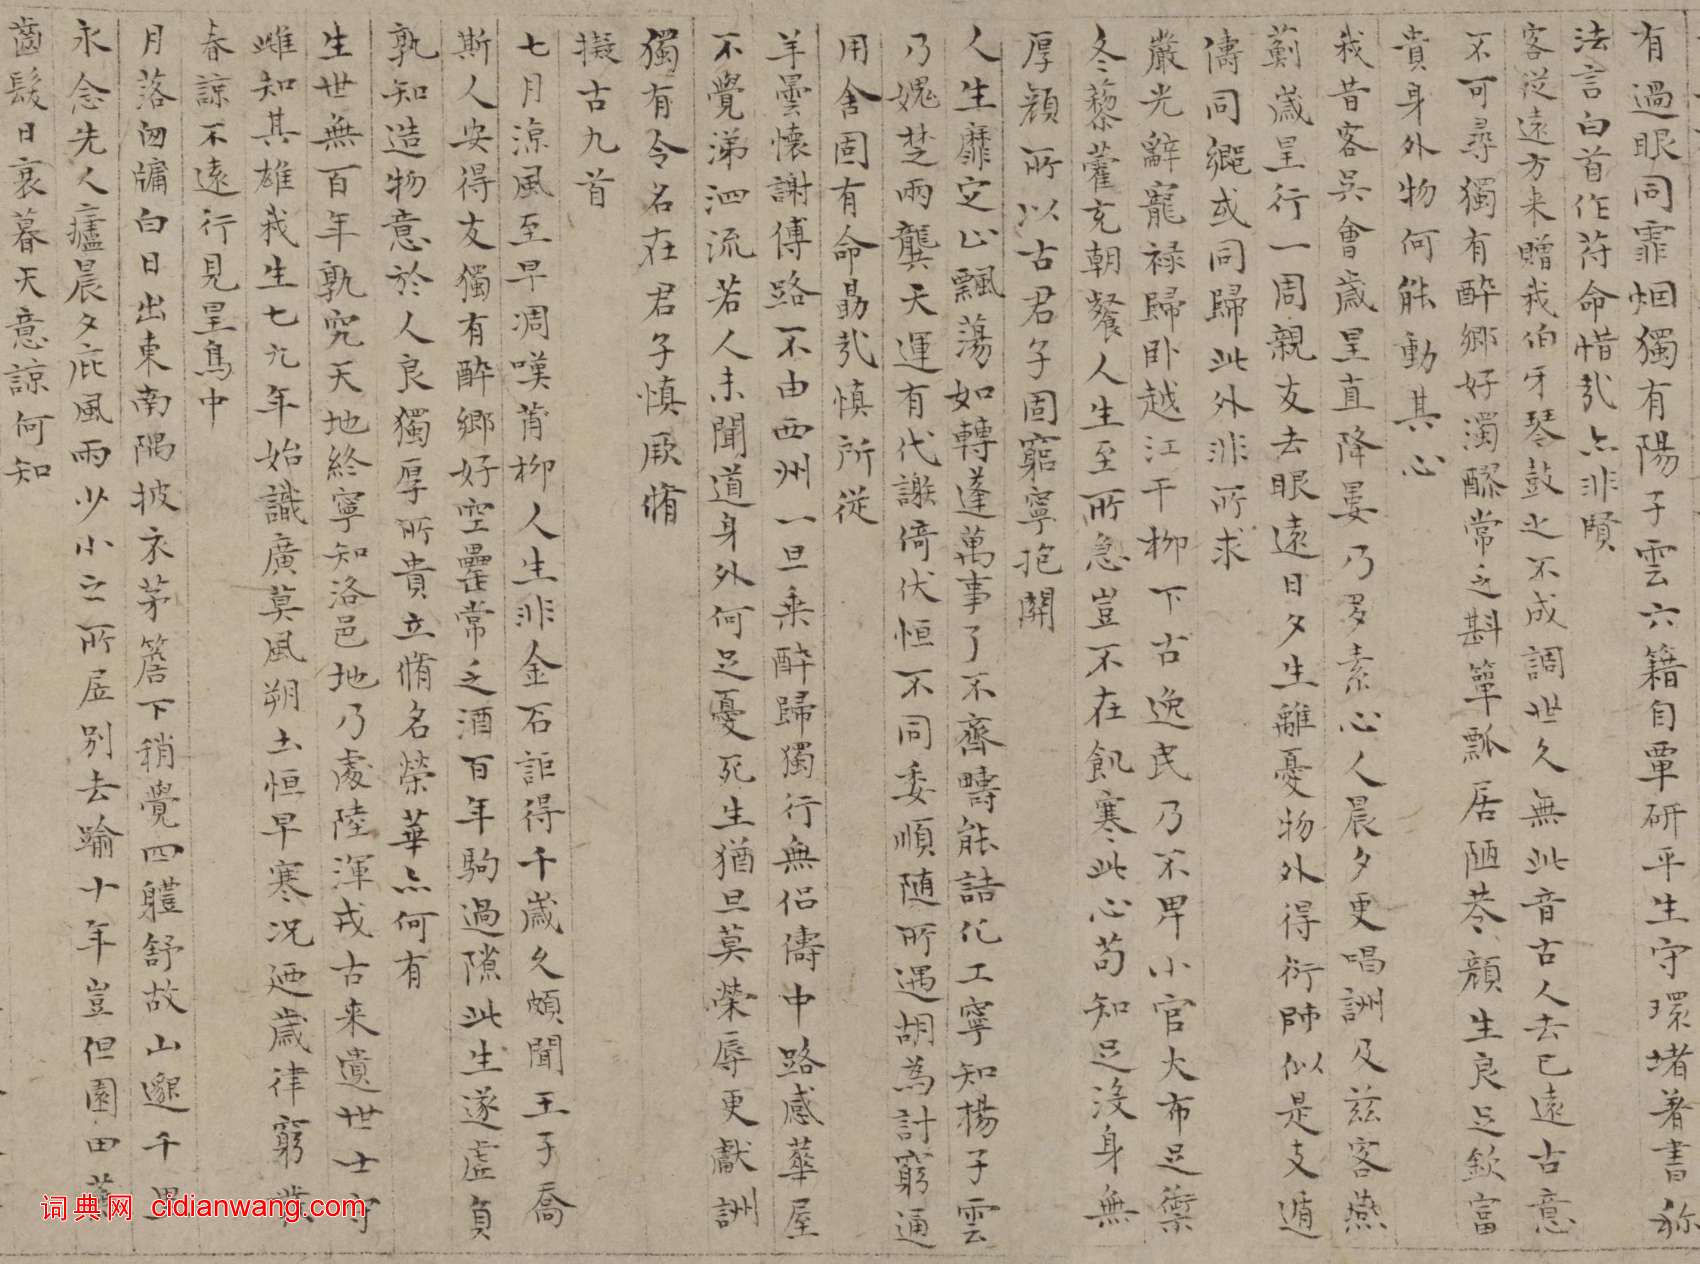 有過眼同霏烟獨有陽子雲六籍自覃研平生守環堵著書称
法言白首作苻命惜哉亦非賢
客從遠方来贈我伯牙琴鼓之不成調世久無此音古人去已遠古意
不可尋獨有酔郷好濁醪常之斟簞瓢居陋巷顔生良足欽富
貴身外物何能動其心
我昔客吳會歳星直降婁乃多素心人晨夕更唱詶及兹客燕
薊歳星行一周親友去眼遠日夕生離憂物外得衍師似是支遁
儔同郷或同歸此外非所求
嚴光辭寵禄歸卧越江干柳下古逸民乃不卑小官大布足禦
冬藜藿充朝餐人生至所急豈不在飢寒此心苟知足没身無
厚顔所以古君子固窮寧抱關
人生靡定止飄蕩如轉蓬萬事了不齊疇能詰化工寧知楊子雲
乃媿楚兩龔天運有代謝倚伏恒不同委順随所遇胡為計窮通
用舍固有命勗哉慎所從
羊曇懐謝傅路不由西州一旦乗酔歸獨行無侣儔中路感華屋
不覺涕泗流若人未聞道身外何足憂死生猶旦莫榮辱更獻詶
獨有令名在君子慎厥脩
擬古九首
七月涼風至早凋嘆蒲柳人生非金石詎得千歳久頗聞王子喬
斯人安得友獨有酔郷好空罍常乏酒百年駒過隙此生遂虚負
孰知造物意於人良獨厚所貴立脩名榮華亦何有
生世無百年孰究天地終寧知洛邑地乃處陸渾戎古来遺世士守
雌知其雄我生七九年始識廣莫風朔土恒早寒况迺歳律窮
春諒不遠行見星鳥中
月落囱牗白日出東南隅披衣茅簷下稍覺四軆舒故山邈千里
永念先人廬晨夕庇風雨少小之所居別去踰十年豈但園田蕪
齒髮日衰暮天意諒何知
词典网 cidianwang.com